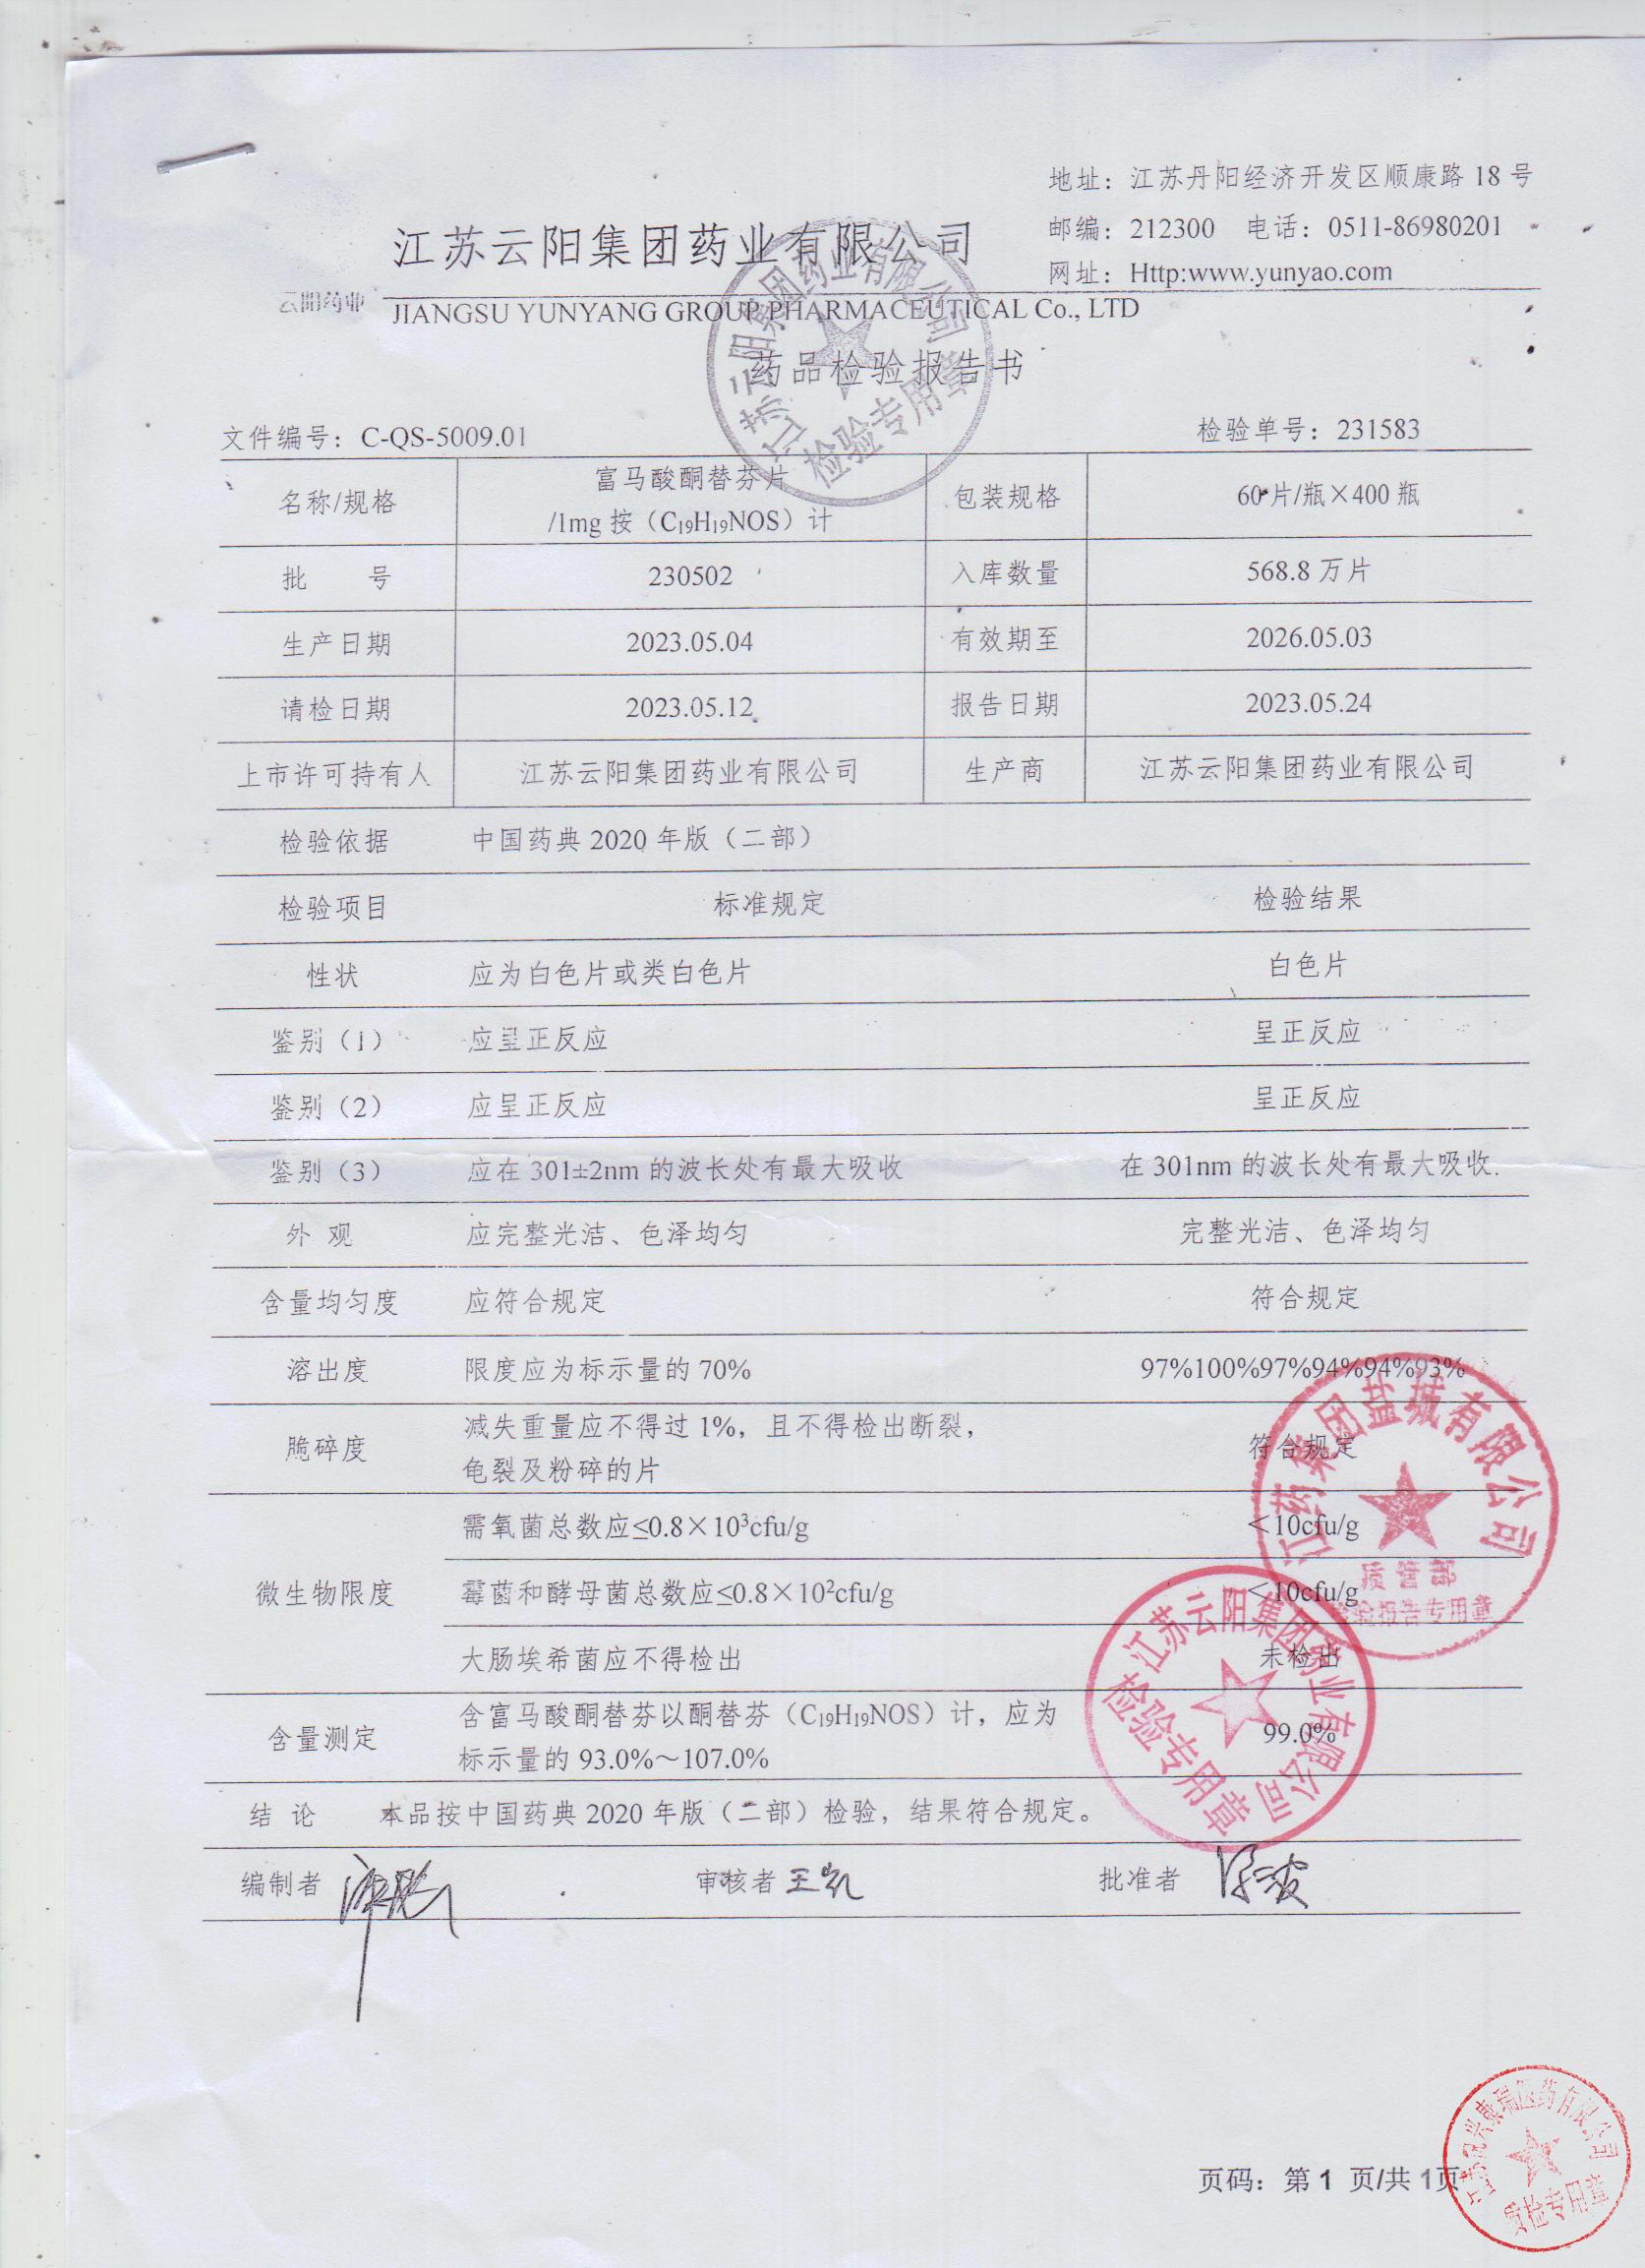 地址：江苏丹阳经济开发区顺康路 18 号
江苏云阳集团药业有限公司
邮编：212300 电话：0511-86980201
网址：Http:www.yunyao.com
云阳药业
JIANGSU YUNYANG GROUP PHARMACEUTICAL Co., LTD
药品检验报告书
江苏云阳集团药业有限公司
检验专用章
文件编号：C-QS-5009.01 检验单号：231583
名称/规格 富马酸酮替芬片 /1mg 按（C₁₉H₁₉NOS）计 包装规格 60 片/瓶×400 瓶
批 号 230502 入库数量 568.8 万片
生产日期 2023.05.04 有效期至 2026.05.03
请检日期 2023.05.12 报告日期 2023.05.24
上市许可持有人 江苏云阳集团药业有限公司 生产商 江苏云阳集团药业有限公司
检验依据 中国药典 2020 年版（二部）
检验项目 标准规定 检验结果
性状 应为白色片或类白色片 白色片
鉴别（1） 应呈正反应 呈正反应
鉴别（2） 应呈正反应 呈正反应
鉴别（3） 应在 301±2nm 的波长处有最大吸收 在 301nm 的波长处有最大吸收.
外 观 应完整光洁、色泽均匀 完整光洁、色泽均匀
含量均匀度 应符合规定 符合规定
溶出度 限度应为标示量的 70% 97%100%97%94%94%93%
脆碎度 减失重量应不得过 1%，且不得检出断裂，
龟裂及粉碎的片 符合规定
微生物限度 需氧菌总数应≤0.8×10³cfu/g ＜10cfu/g
霉菌和酵母菌总数应≤0.8×10²cfu/g ＜10cfu/g
大肠埃希菌应不得检出 未检出
含量测定 含富马酸酮替芬以酮替芬（C₁₉H₁₉NOS）计，应为
标示量的 93.0%～107.0% 99.0%
结 论 本品按中国药典 2020 年版（二部）检验，结果符合规定。
编制者 审核者 王凯 批准者
江药集团盐城有限公司
质管部
检验报告专用章
江苏云阳集团药业有限公司
检验专用章
页码：第 1 页/共 1页